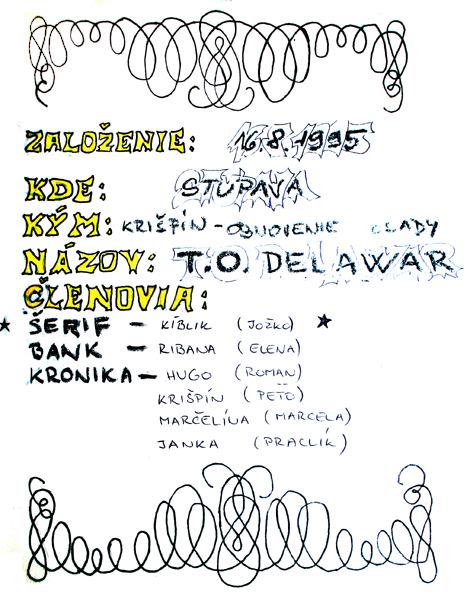 ZALOŽENIE: 16.8.1995
KDE: STUPAVA
KÝM: KRIŠPÍN - OBNOVENIE OSADY
NÁZOV: T.O. DELAWAR
ČLENOVIA:
ŠERIF - KÍBLIK (JOŽKO)
BANK - RIBANA (ELENA)
KRONIKA - HUGO (ROMAN)
KRIŠPÍN (PEŤO)
MARČELÍNA (MARCELA)
JANKA (PRACLÍK)